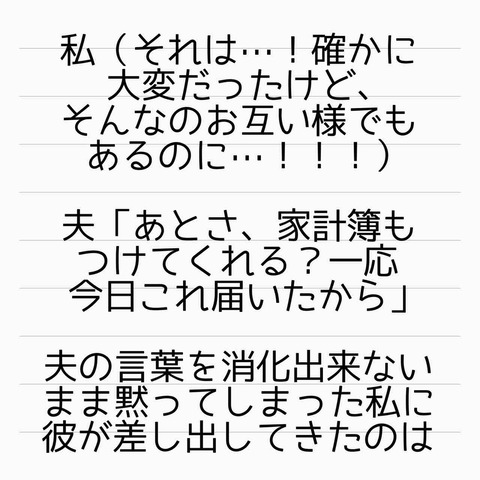 私（それは…！確かに
大変だったけど、
そんなのお互い様でも
あるのに…！！！）
夫「あとさ、家計簿も
つけてくれる？一応
今日これ届いたから」
夫の言葉を消化出来ない
まま黙ってしまった私に
彼が差し出してきたのは